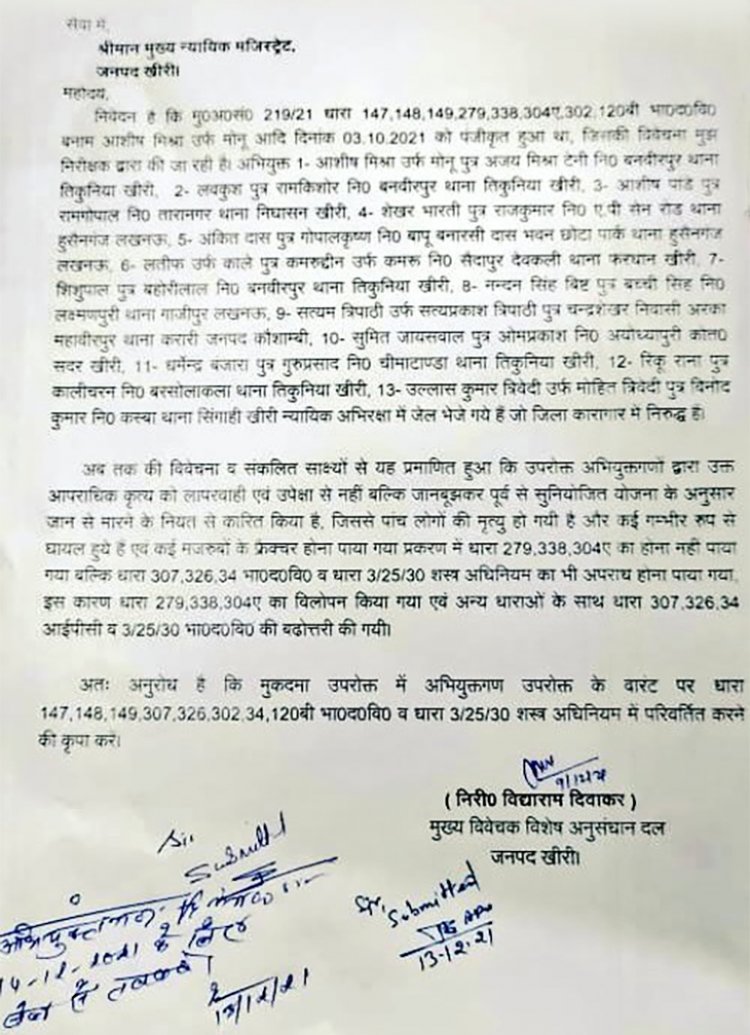 सेवा में,
श्रीमान मुख्य न्यायिक मजिस्ट्रेट,
जनपद खीरी।
महोदय,
निवेदन है कि मु0अ0सं0 219/21 धारा 147,148,149,279,338,304ए,302,120बी भा0द0वि0
बनाम आशीष मिश्रा उर्फ मोनू आदि दिनांक 03.10.2021 को पंजीकृत हुआ था, जिसकी विवेचना मुझ
निरीक्षक द्वारा की जा रही है। अभियुक्त 1- आशीष मिश्रा उर्फ मोनू पुत्र अजय मिश्रा टेनी नि0 बनवीरपुर थाना
तिकुनिया खीरी, 2- लवकुश पुत्र रामकिशोर नि0 बनवीरपुर थाना तिकुनिया खीरी, 3- आशीष पांडे पुत्र
रामगोपाल नि0 तारानगर थाना निघासन खीरी, 4- शेखर भारती पुत्र राजकुमार नि0 ए.पी सेन रोड थाना
हुसैनगंज लखनऊ, 5- अंकित दास पुत्र गोपालकृष्ण नि0 बापू बनारसी दास भवन छोटा पार्क थाना हुसैनगंज
लखनऊ, 6- लतीफ उर्फ काले पुत्र कमरुद्दीन उर्फ कमरू नि0 सैदापुर देवकली थाना फरधान खीरी, 7-
शिशुपाल पुत्र बहोरीलाल नि0 बनवीरपुर थाना तिकुनिया खीरी, 8- नन्दन सिंह बिष्ट पुत्र बच्ची सिंह नि0
लक्ष्मणपुरी थाना गाजीपुर लखनऊ, 9- सत्यम त्रिपाठी उर्फ सत्यप्रकाश त्रिपाठी पुत्र चन्द्रशेखर निवासी अरका
महावीरपुर थाना करारी जनपद कौशाम्बी, 10- सुमित जायसवाल पुत्र ओमप्रकाश नि0 अयोध्यापुरी कोत0
सदर खीरी, 11- धर्मेन्द्र बंजारा पुत्र गुरुप्रसाद नि0 चीमाटाण्डा थाना तिकुनिया खीरी, 12- रिंकू राना पुत्र
कालीचरन नि0 बरसोलाकला थाना तिकुनिया खीरी, 13- उल्लास कुमार त्रिवेदी उर्फ मोहित त्रिवेदी पुत्र विनोद
कुमार नि0 कस्बा थाना सिंगाही खीरी न्यायिक अभिरक्षा में जेल भेजे गये हैं जो जिला कारागार में निरुद्ध हैं।
अब तक की विवेचना व संकलित साक्ष्यों से यह प्रमाणित हुआ कि उपरोक्त अभियुक्तगणों द्वारा उक्त
आपराधिक कृत्य को लापरवाही एवं उपेक्षा से नहीं बल्कि जानबूझकर पूर्व से सुनियोजित योजना के अनुसार
जान से मारने के नियत से कारित किया है, जिससे पांच लोगों की मृत्यु हो गयी है और कई गम्भीर रुप से
घायल हुये हैं एवं कई मजरुबों के फ्रैक्चर होना पाया गया प्रकरण में धारा 279,338,304ए का होना नही पाया
गया बल्कि धारा 307,326,34 भा0द0वि0 व धारा 3/25/30 शस्त्र अधिनियम का भी अपराध होना पाया गया,
इस कारण धारा 279,338,304ए का विलोपन किया गया एवं अन्य धाराओं के साथ धारा 307,326,34
आईपीसी व 3/25/30 भा0द0वि0 की बढोत्तरी की गयी।
अतः अनुरोध है कि मुकदमा उपरोक्त में अभियुक्तगण उपरोक्त के वारंट पर धारा
147,148,149,307,326,302,34,120बी भा0द0वि0 व धारा 3/25/30 शस्त्र अधिनियम में परिवर्तित करने
की कृपा करें।
( निरी0 विद्याराम दिवाकर )
मुख्य विवेचक विशेष अनुसंधान दल
जनपद खीरी।
Sir
Submitted
14-12-2021 के लिए
जेल से तलब हो
13/12/21
Sir,
Submitted
13-12-21